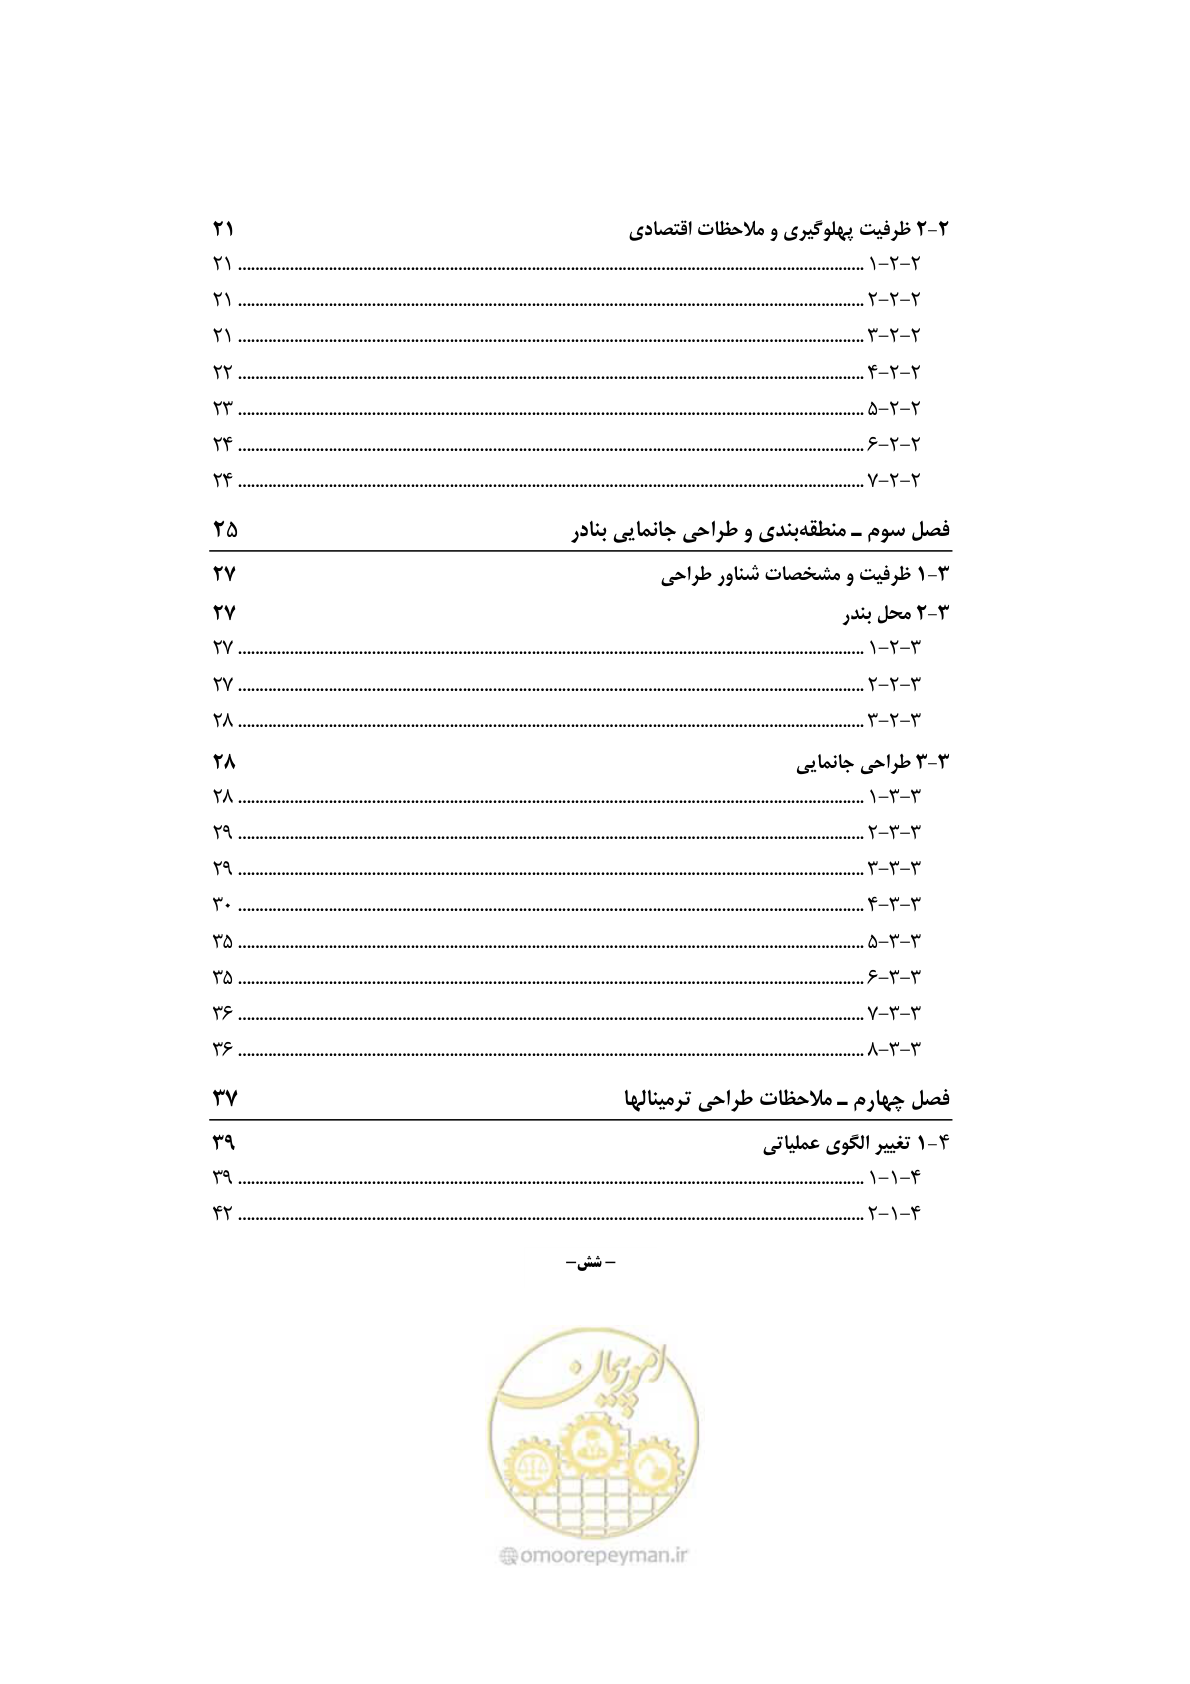 ۲-۲ ظرفیت پهلوگیری و ملاحظات اقتصادی ۲۱
۱-۲-۲ ........ ۲۱
۲-۲-۲ ........ ۲۱
۳-۲-۲ ........ ۲۱
۴-۲-۲ ........ ۲۲
۵-۲-۲ ........ ۲۳
۶-۲-۲ ........ ۲۴
۷-۲-۲ ........ ۲۴
فصل سوم ـ منطقه‌بندی و طراحی جانمایی بنادر ۲۵
۳-۱ ظرفیت و مشخصات شناور طراحی ۲۷
۳-۲ محل بندر ۲۷
۱-۲-۳ ........ ۲۷
۲-۲-۳ ........ ۲۷
۳-۲-۳ ........ ۲۸
۳-۳ طراحی جانمایی ۲۸
۱-۳-۳ ........ ۲۸
۲-۳-۳ ........ ۲۹
۳-۳-۳ ........ ۲۹
۴-۳-۳ ........ ۳۰
۵-۳-۳ ........ ۳۵
۶-۳-۳ ........ ۳۵
۷-۳-۳ ........ ۳۶
۸-۳-۳ ........ ۳۶
فصل چهارم ـ ملاحظات طراحی ترمینالها ۳۷
۴-۱ تغییر الگوی عملیاتی ۳۹
۱-۱-۴ ........ ۳۹
۲-۱-۴ ........ ۴۲
- شش-
امور پیمان
@omoorepeyman.ir